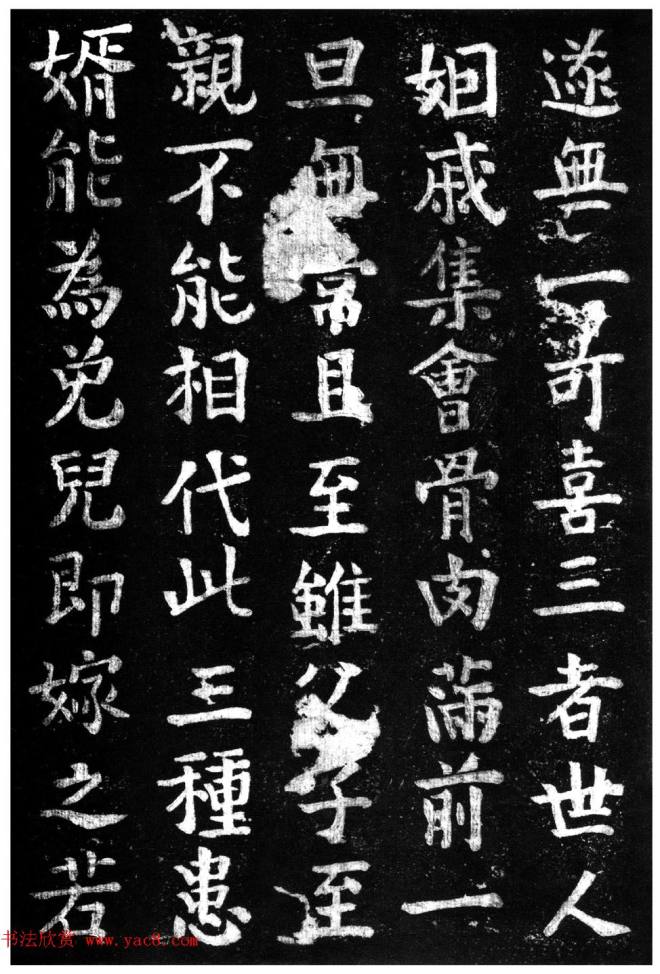 遂無一可喜三者世人
姻戚集會骨肉滿前一
旦無常且至雖父子至
親不能相代此三種患
婿能為免兒即嫁之若
书法欣赏 www.yac8.com